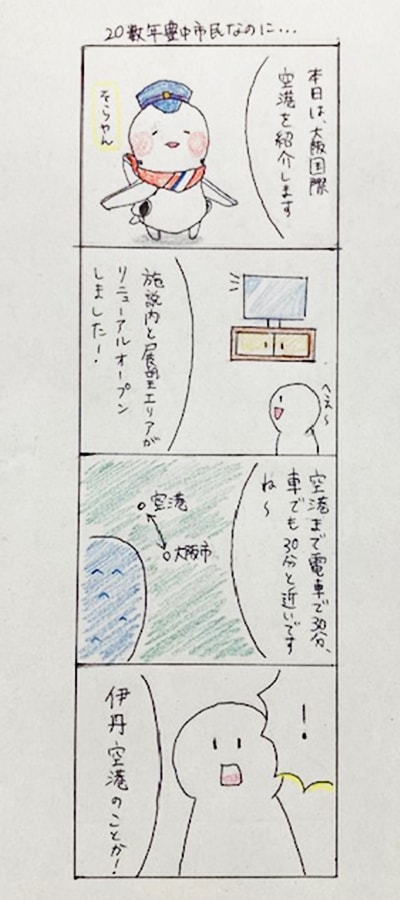 20数年豊中市民なのに...
本日は、大阪国際
空港を紹介します
そらやん
へぇ〜
施設内と展望エリアが
リニューアルオープン
しました!
空港まで電車で30分、
車でも30分と近いです
ね〜
空港
大阪市
!
伊丹空港のことか!